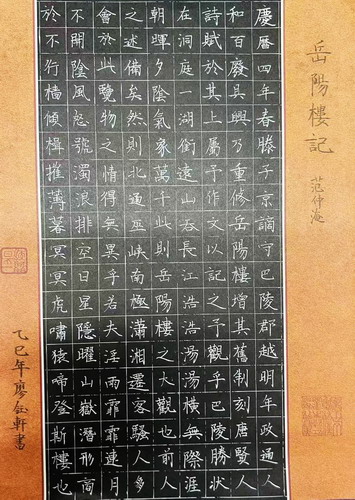 岳陽樓記
范仲淹
慶曆四年春滕子京謫守巴陵郡越明年政通人
和百廢具興乃重修岳陽樓增其舊制刻唐賢人
詩賦於其上屬予作文以記之予觀乎巴陵勝狀
在洞庭一湖銜遠山吞長江浩浩湯湯橫無際涯
朝暉夕陰氣象萬千此則岳陽樓之大觀也前人
之述備矣然則北通巫峽南極瀟湘遷客騷人多
會於此覽物之情得無異乎若夫淫雨霏霏連月
不開陰風怒號濁浪排空日星隱曜山嶽潛形商
於不行檣傾楫摧薄暮冥冥虎嘯猿啼登斯樓也
乙巳年廖鈺軒書